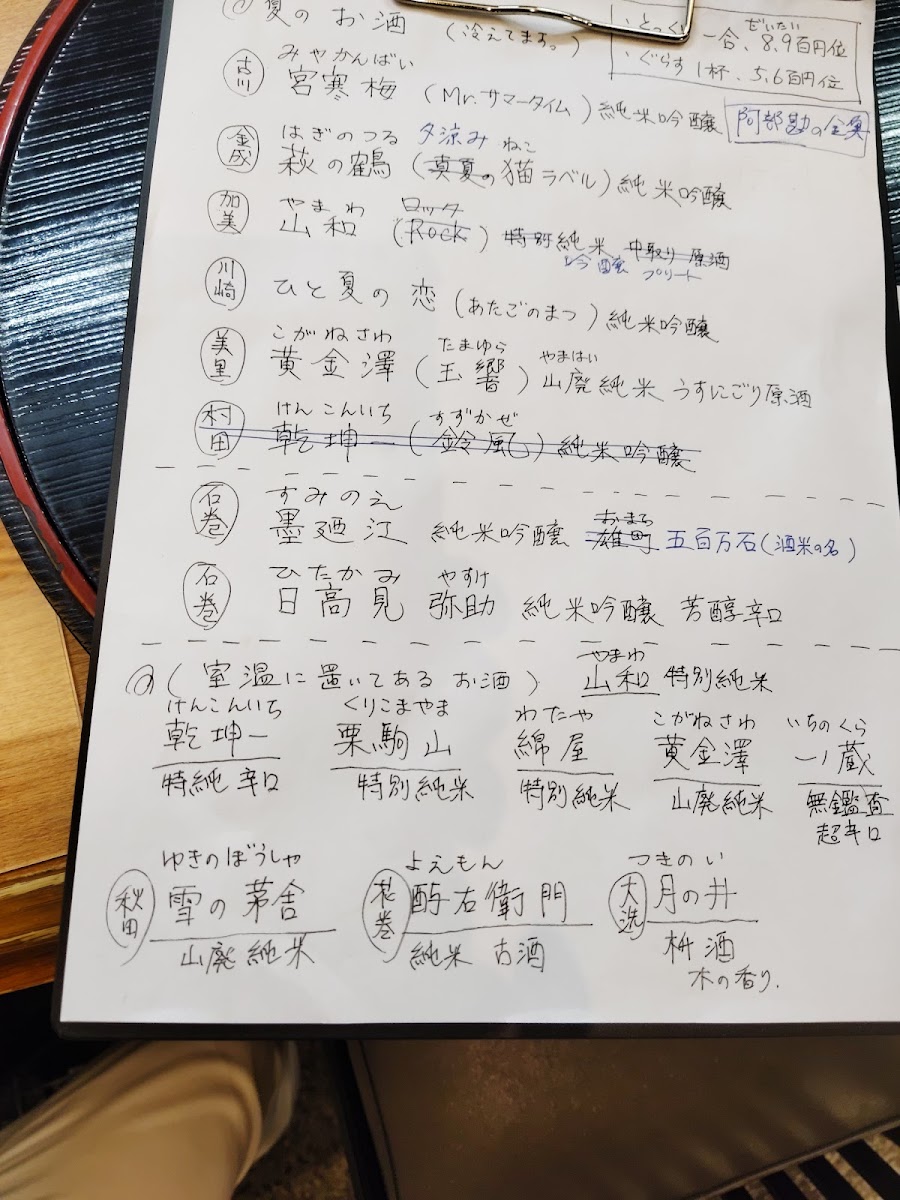 夏のお酒 (冷えてます。)
・とっくり 一合、8,9百円位
ぜいたい
・ぐらす 1杯、5,6百円位
阿部勘の金魚
みやかんばい
古川 宮寒梅 (Mr.サマータイム) 純米吟醸
はぎのつる 夕涼み ねこ
金成 萩の鶴 (真夏の猫ラベル) 純米吟醸
やまわ ロック
加美 山和 (Rock) 特別純米 中取り原酒
吟醸
川崎 ひと夏の恋 (あたごのまつ) 純米吟醸
こがねさわ たまゆら やまはい
美里 黄金澤 (玉響) 山廃純米 うすにごり原酒
けんこんいち すずかぜ
村田 乾坤一 (鈴風) 純米吟醸
すみのえ おまち
石巻 墨廼江 純米吟醸 雄町 五百万石(酒米の名)
ひたかみ やすけ
石巻 日高見 弥助 純米吟醸 芳醇辛口
(室温に置いてあるお酒)
やまわ
山和 特別純米
けんこんいち
乾坤一
特純 辛口
くりこまやま
栗駒山
特別純米
わたや
綿屋
特別純米
こがねさわ
黄金澤
山廃純米
いちのくら
一ノ蔵
無鑑査
超辛口
ゆきのぼうしゃ
秋田 雪の茅舎
山廃 純米
よえもん
花巻 酉与右衛門
純米 古酒
つきのい
大洗 月の井
枡酒
木の香り.